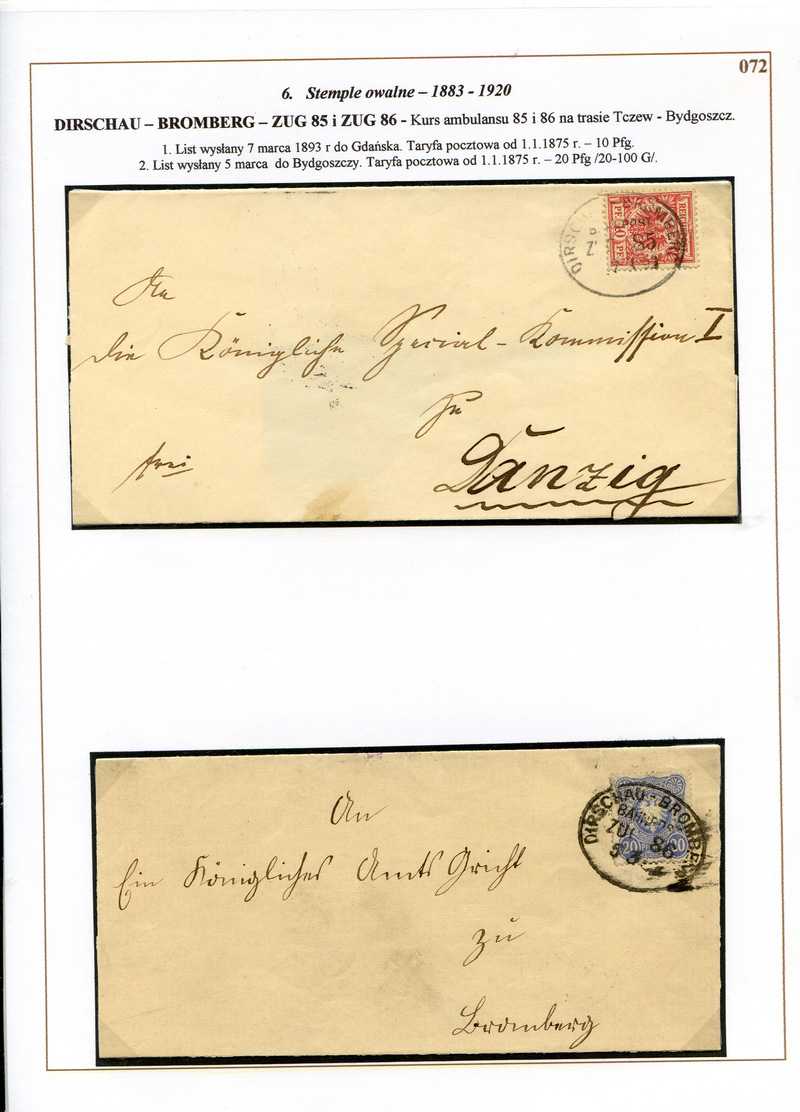 072
6. Stemple owalne – 1883 - 1920
DIRSCHAU – BROMBERG – ZUG 85 i ZUG 86 - Kurs ambulansu 85 i 86 na trasie Tczew - Bydgoszcz.
1. List wysłany 7 marca 1893 r do Gdańska. Taryfa pocztowa od 1.1.1875 r. – 10 Pfg.
2. List wysłany 5 marca do Bydgoszczy. Taryfa pocztowa od 1.1.1875 r. – 20 Pfg /20-100 G/.
85
An
die Königliche Special-Kommission I
zu
Danzig
frei
DIRSCHAU-BROMBERG
BAHNPOST
ZUG 86
20
An
Ein Königliches Amts Gricht
zu
Bromberg